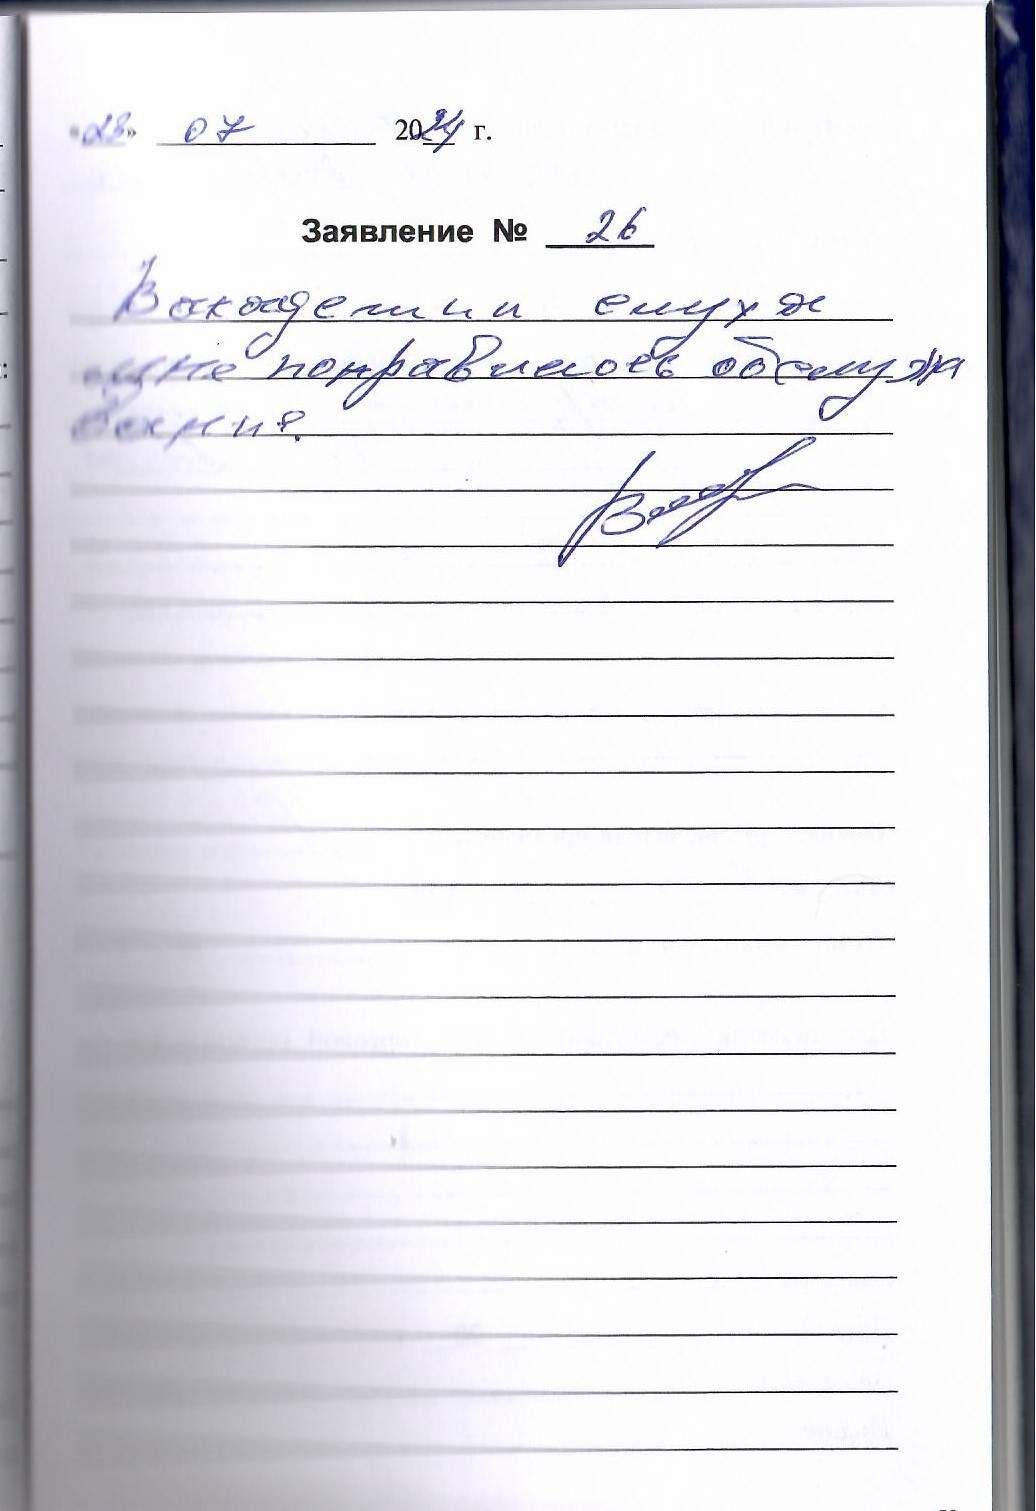 «23» 07 2024 г.
Заявление № 26
В академии слуха
мне понравилось обслужи
вание.